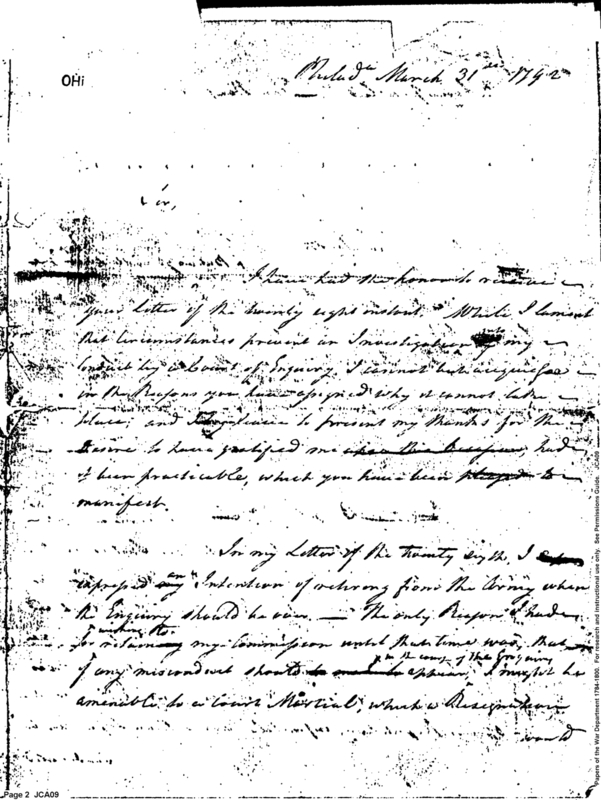 OHi
Philada March 31st 1792
Sir,
I have had the honor to receive
your Letter of the twenty eight instant. While I lament
that Circumstances prevent an Investigation of my
Conduct by a Court of Enquiry, I cannot but acquiesce
in the Reasons you have assigned why it cannot take
place; and I beg leave to present my thanks for the
Desire to have gratified me upon this Occasion, had
it been practicable, which you have been pleased to
manifest.
In my Letter of the twenty sixth, I
expressed an Intention of retiring from the Army when
the Enquiry should be over. — The only Reason I had
for wishing to
retain my Commission until that time was, that
in the course of the Enquiry
if any misconduct should appear, I might be
amenable to a Court Martial, which a Resignation
would
Page 2 JCA09
Papers of the War Department 1784-1800. For research and instructional use only. See Permissions Guide. JCA09